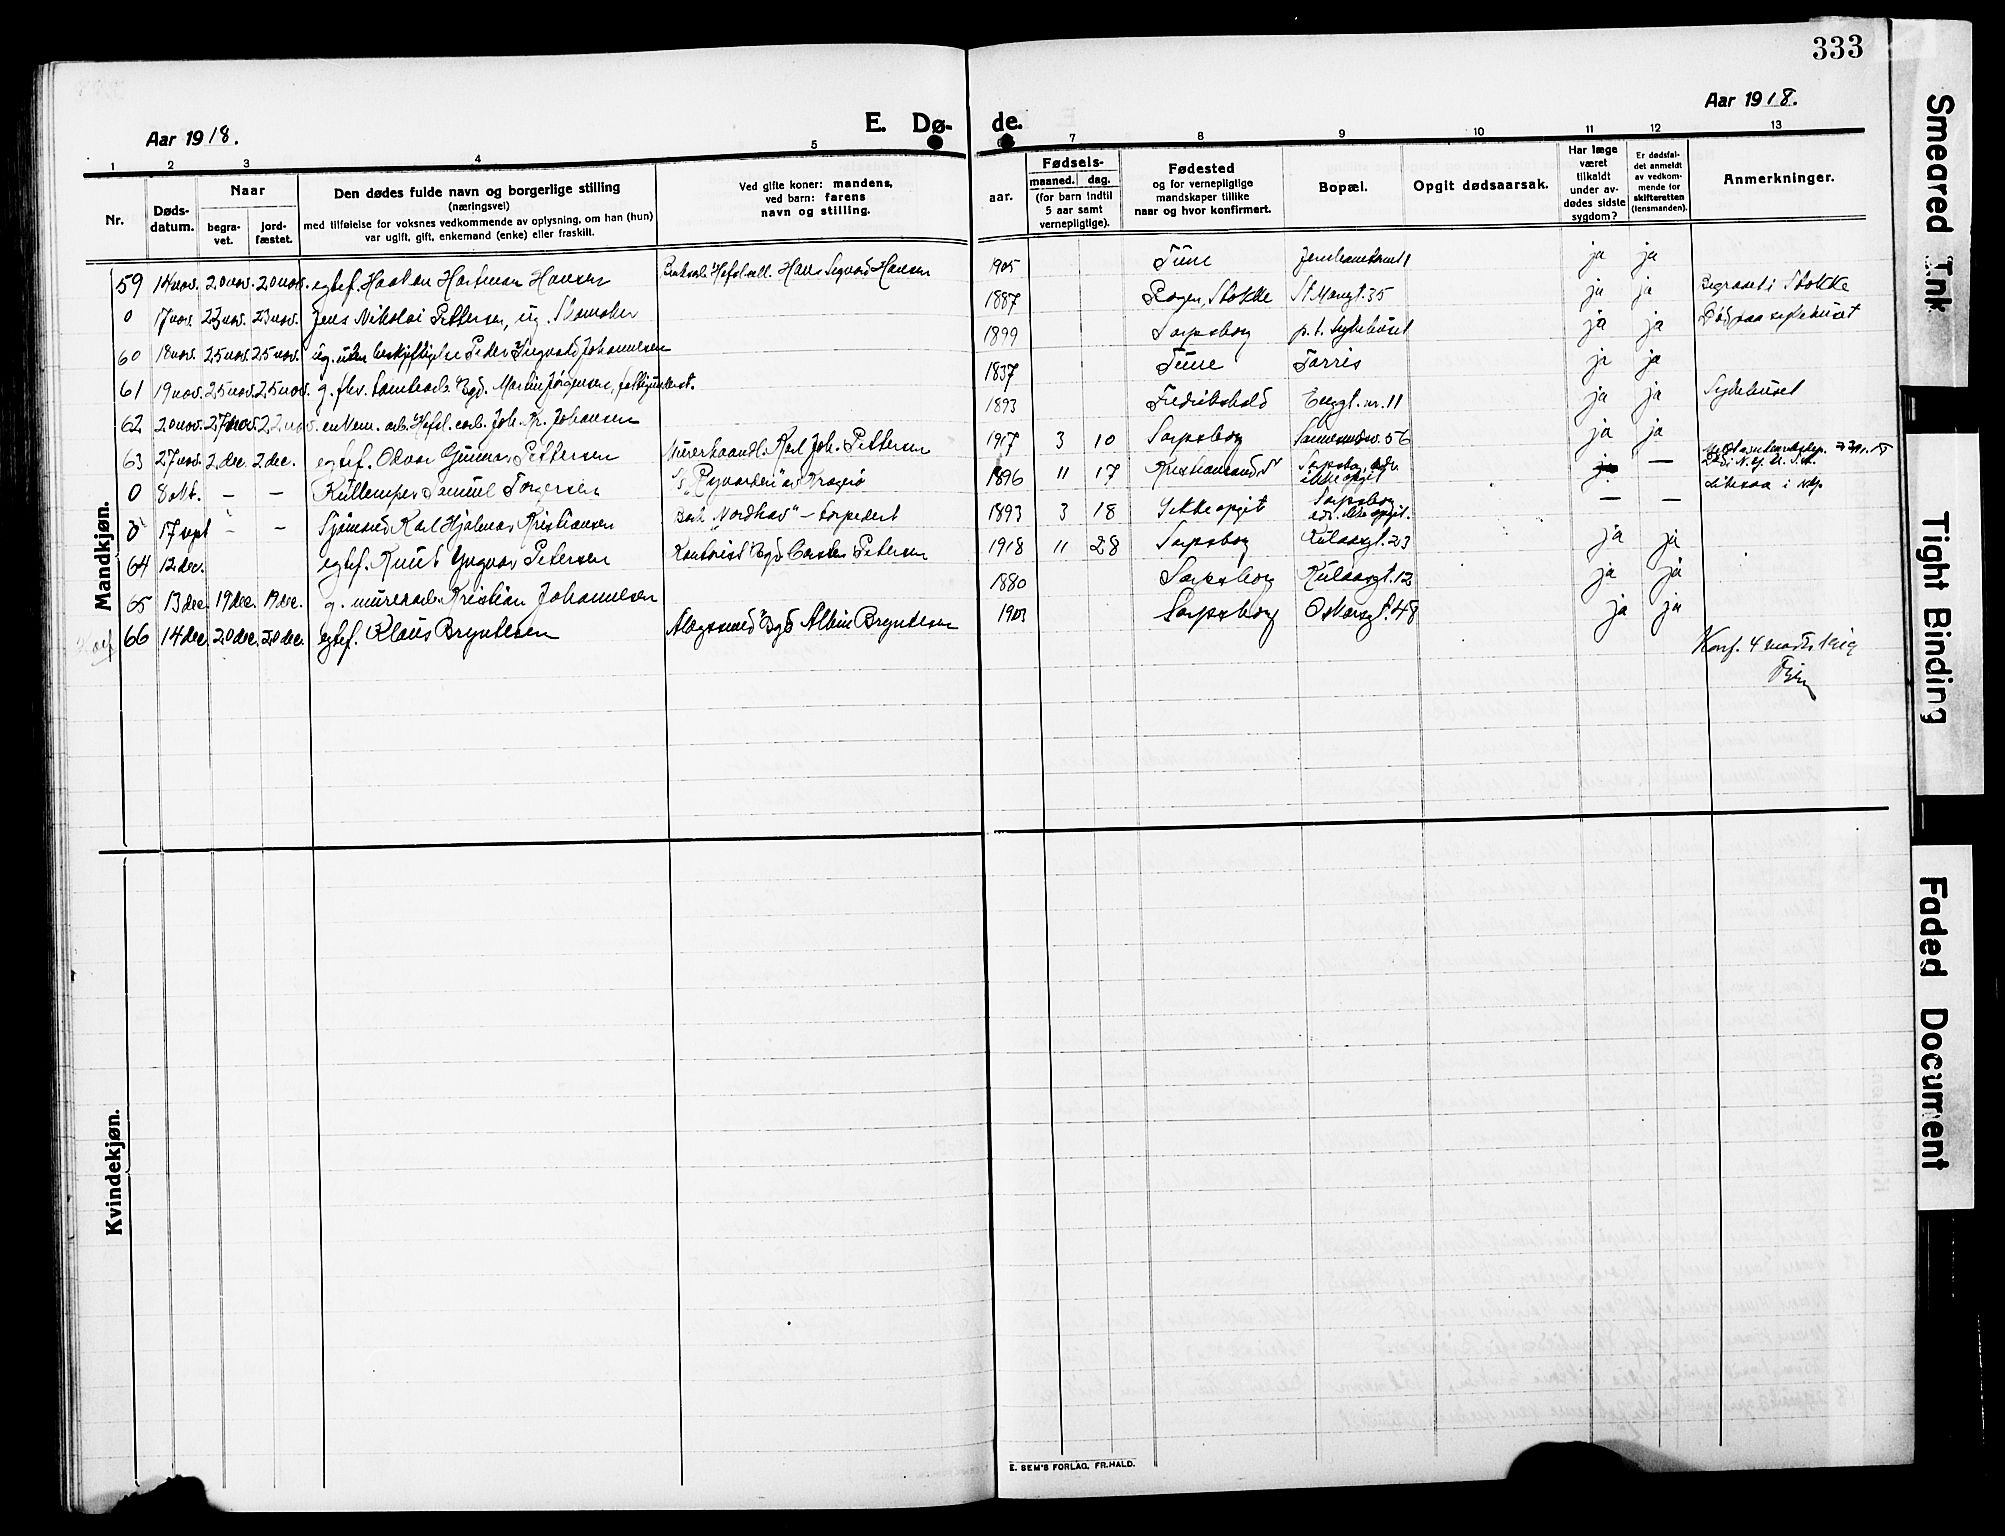 333
Aar 1918.
E. Dø-
de.
Aar 1918.
1 2 3 4 5
7 8 9 10 11 12 13
Nr.
Døds-
datum.
Naar
begra-
vet.
jord-
fæstet.
Den dødes fulde navn og borgerlige stilling
(næringsvei)
med tilføielse for voksnes vedkommende av oplysning, om han (hun)
var ugift, gift, enkemand (enke) eller fraskilt.
Ved gifte koner: mandens,
ved barn: farens
navn og stilling.
aar.
Fødsels-
maaned. dag.
(for barn indtil
5 aar samt
vernepligtige).
Fødested
og for vernepligtige
mandskaper tillike
naar og hvor konfirmert.
Bopæl.
Opgit dødsaarsak.
Har læge
været
tilkaldt
under av-
dødes sidste
sygdom?
Er dødsfal-
det anmeldt
av vedkom-
mende for
skifteretten
(lensmanden).
Anmerkninger.
Mandkjøn.
59 14 nov. 20 nov. 20 nov. egtef. Haakon Hartman Hansen Hans Sigvard Hansen 1905 Tune ja ja
0 17 nov. 23 nov. 23 nov. Jens Nikolai Pettersen, ug. 1887 Stokke St Mariegt. 35 ja ja Begravet i Stokke
60 18 nov. 25 nov. 25 nov. ug. uten beskjæftigelse Peder Ingvald Johannesen 1899 Sarpsborg p.t. Sykehuset ja ja Død paa sykehuset
61 19 nov. 25 nov. 25 nov. g. fhv. tomtearb. Martin Jørgensen, 1837 Tune Torris ja ja
62 20 nov. 27 nov. 22 nov. enkem. arb. Joh. Kr. Johansen 1893 Fredrikshald Engt. nr. 11 ja ja Sykehuset
63 27 nov. 2 dec. 2 dec. egtef. Odvar Gunnar Pettersen Karl Joh. Pettersen 1917 3 10 Sarpsborg 56 ja ja
0 8 okt. — — Kullemper Samuel Torgersen S/S "Ryvarden" av Kragerø 1896 11 17 Kristiansand S Sarpsborg, adr. ikke opgit —
0 17 sept — — Sjømand Karl Hjalmar Kristiansen Bark "Nordhav" – torpedert 1893 3 18 Ikke opgit Sarpsborg adr. ikke opgit. — —
64 12 dec. egtef. Knut Yngvar Petersen Kontorist Carsten Petersen 1918 11 28 Sarpsborg Kulaasgt. 23 ja ja
65 13 dec. 19 dec. 19 dec. g. murerarb. Kristian Johannesen 1880 Sarpsborg Kulaasgt. 12 ja ja
66 14 dec. 20 dec. 20 dec. egtef. Klaus Bryntesen Albin Bryntesen 1903 Sarpsborg Oskarsgt. 48 ja ja
Konf. 4 marts 1919
Kvindekjøn.
E. SEM'S FORLAG, FR.HALD.
Smeared Ink
Tight Binding
Faded Document